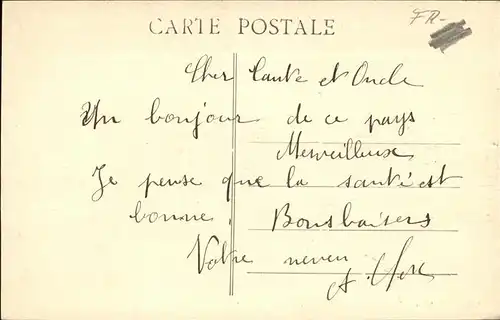 CARTE POSTALE
FR-
Cher Tante et Oncle
Un bonjour de ce pays
Merveilleux
Je pense que la santé est
bonne, Bons baisers
Votre neveu